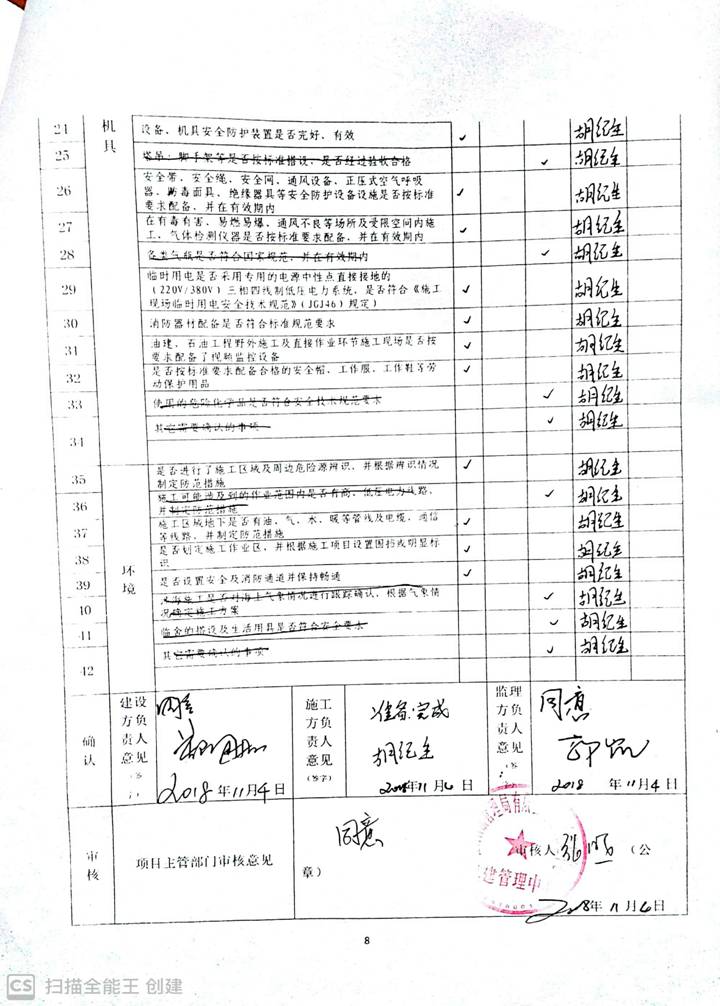 机具
24 设备、机具安全防护装置是否完好、有效 ✓ 胡纪全
25 塔吊、脚手架等是否按标准搭设、是否经过验收合格 ✓ 胡纪全
26 安全带、安全绳、安全网、通风设备、正压式空气呼吸
器、防毒面具、绝缘器具等安全防护设备设施是否按标准
要求配备、并在有效期内 ✓ 胡纪全
27 在有毒有害、易燃易爆、通风不良等场所及受限空间内施
工、气体检测仪器是否按标准要求配备、并在有效期内 ✓ 胡纪全
28 各类气瓶是否符合国家规范、并在有效期内 ✓ 胡纪全
29 临时用电是否采用专用的电源中性点直接接地的
(220V/380V)三相四线制低压电力系统，是否符合《施工
现场临时用电安全技术规范》(JGJ46)规定) ✓ 胡纪全
30 消防器材配备是否符合标准规范要求 ✓ 胡纪全
31 油建、石油工程野外施工及直接作业环节施工现场是否按
要求配备了视频监控设备 ✓ 胡纪全
32 是否按标准要求配备合格的安全帽、工作服、工作鞋等劳
动保护用品 ✓ 胡纪全
33 使用的危险化学品是否符合安全技术规范要求 ✓ 胡纪全
34 其它需要确认的事项 ✓ 胡纪全
环境
35 是否进行了施工区域及周边危险源辨识，并根据辨识情况
制定防范措施 ✓ 胡纪全
36 施工可能涉及到的作业范围内是否有高、低压电力线路，
并制定防范措施 ✓ 胡纪全
37 施工区域地下是否有油、气、水、暖等管线及电缆、通信
等线路，并制定防范措施 ✓ 胡纪全
38 是否划定施工作业区，并根据施工项目设置围挡或明显标
识 ✓ 胡纪全
39 是否设置安全及消防通道并保持畅通 ✓ 胡纪全
40 海施工是否对海上气象情况进行跟踪确认，根据气象情
况确定施工方案 ✓ 胡纪全
41 临舍的搭设及生活用具是否符合安全要求 ✓ 胡纪全
42 其它需要确认的事项 ✓ 胡纪全
确认
建设方负责人意见(签
2018年11月4日
施工方负责人意见(签字)
准备完成
胡纪全
2018年11月6日
监理方负责人意见(签
同意
2018年11月4日
审核
项目主管部门审核意见
同意
审核人 (公
章)
建管理中
2018年11月6日
8
CS 扫描全能王 创建